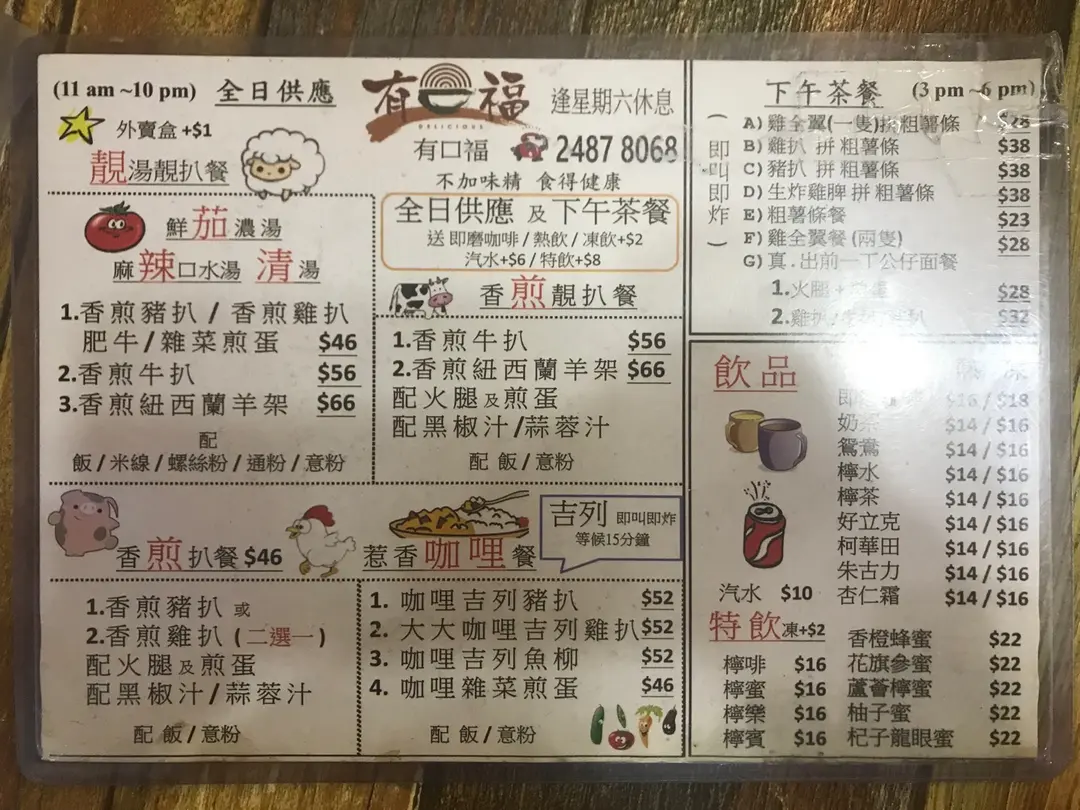 (11 am ~10 pm) 全日供應
外賣盒 +$1
靚湯靚扒餐
鮮茄濃湯
麻辣口水湯 清湯
1.香煎豬扒 / 香煎雞扒
肥牛/雜菜煎蛋 $46
2.香煎牛扒 $56
3.香煎紐西蘭羊架 $66
配
飯/米線/螺絲粉/通粉/意粉
有口福
DELICIOUS
逢星期六休息
有口福 2487 8068
不加味精 食得健康
全日供應 及 下午茶餐
送 即磨咖啡/熱飲/凍飲+$2
汽水+$6 / 特飲+$8
香煎靚扒餐
1.香煎牛扒 $56
2.香煎紐西蘭羊架 $66
配火腿及煎蛋
配黑椒汁/蒜蓉汁
配 飯/意粉
香煎扒餐 $46
1.香煎豬扒 或
2.香煎雞扒 (二選一)
配火腿及煎蛋
配黑椒汁/蒜蓉汁
配 飯/意粉
惹香咖哩餐
吉列 即叫即炸
等候15分鐘
1. 咖哩吉列豬扒 $52
2. 大大咖哩吉列雞扒 $52
3. 咖哩吉列魚柳 $52
4. 咖哩雜菜煎蛋 $46
配 飯/意粉
下午茶餐 (3 pm ~6 pm)
(即叫即炸)
A) 雞全翼(一隻)拼粗薯條 $28
B) 雞扒 拼 粗薯條 $38
C) 豬扒 拼 粗薯條 $38
D) 生炸雞脾 拼 粗薯條 $38
E) 粗薯條餐 $23
F) 雞全翼餐 (兩隻) $28
G) 真.出前一丁公仔面餐
1.火腿 + $28
2.雞扒 $32
飲品
即 $16 / $18
奶茶 $14 / $16
鴛鴦 $14 / $16
檸水 $14 / $16
檸茶 $14 / $16
好立克 $14 / $16
柯華田 $14 / $16
朱古力 $14 / $16
杏仁霜 $14 / $16
汽水 $10
特飲 凍+$2
檸啡 $16
檸蜜 $16
檸樂 $16
檸賓 $16
香橙蜂蜜 $22
花旗參蜜 $22
蘆薈檸蜜 $22
柚子蜜 $22
杞子龍眼蜜 $22